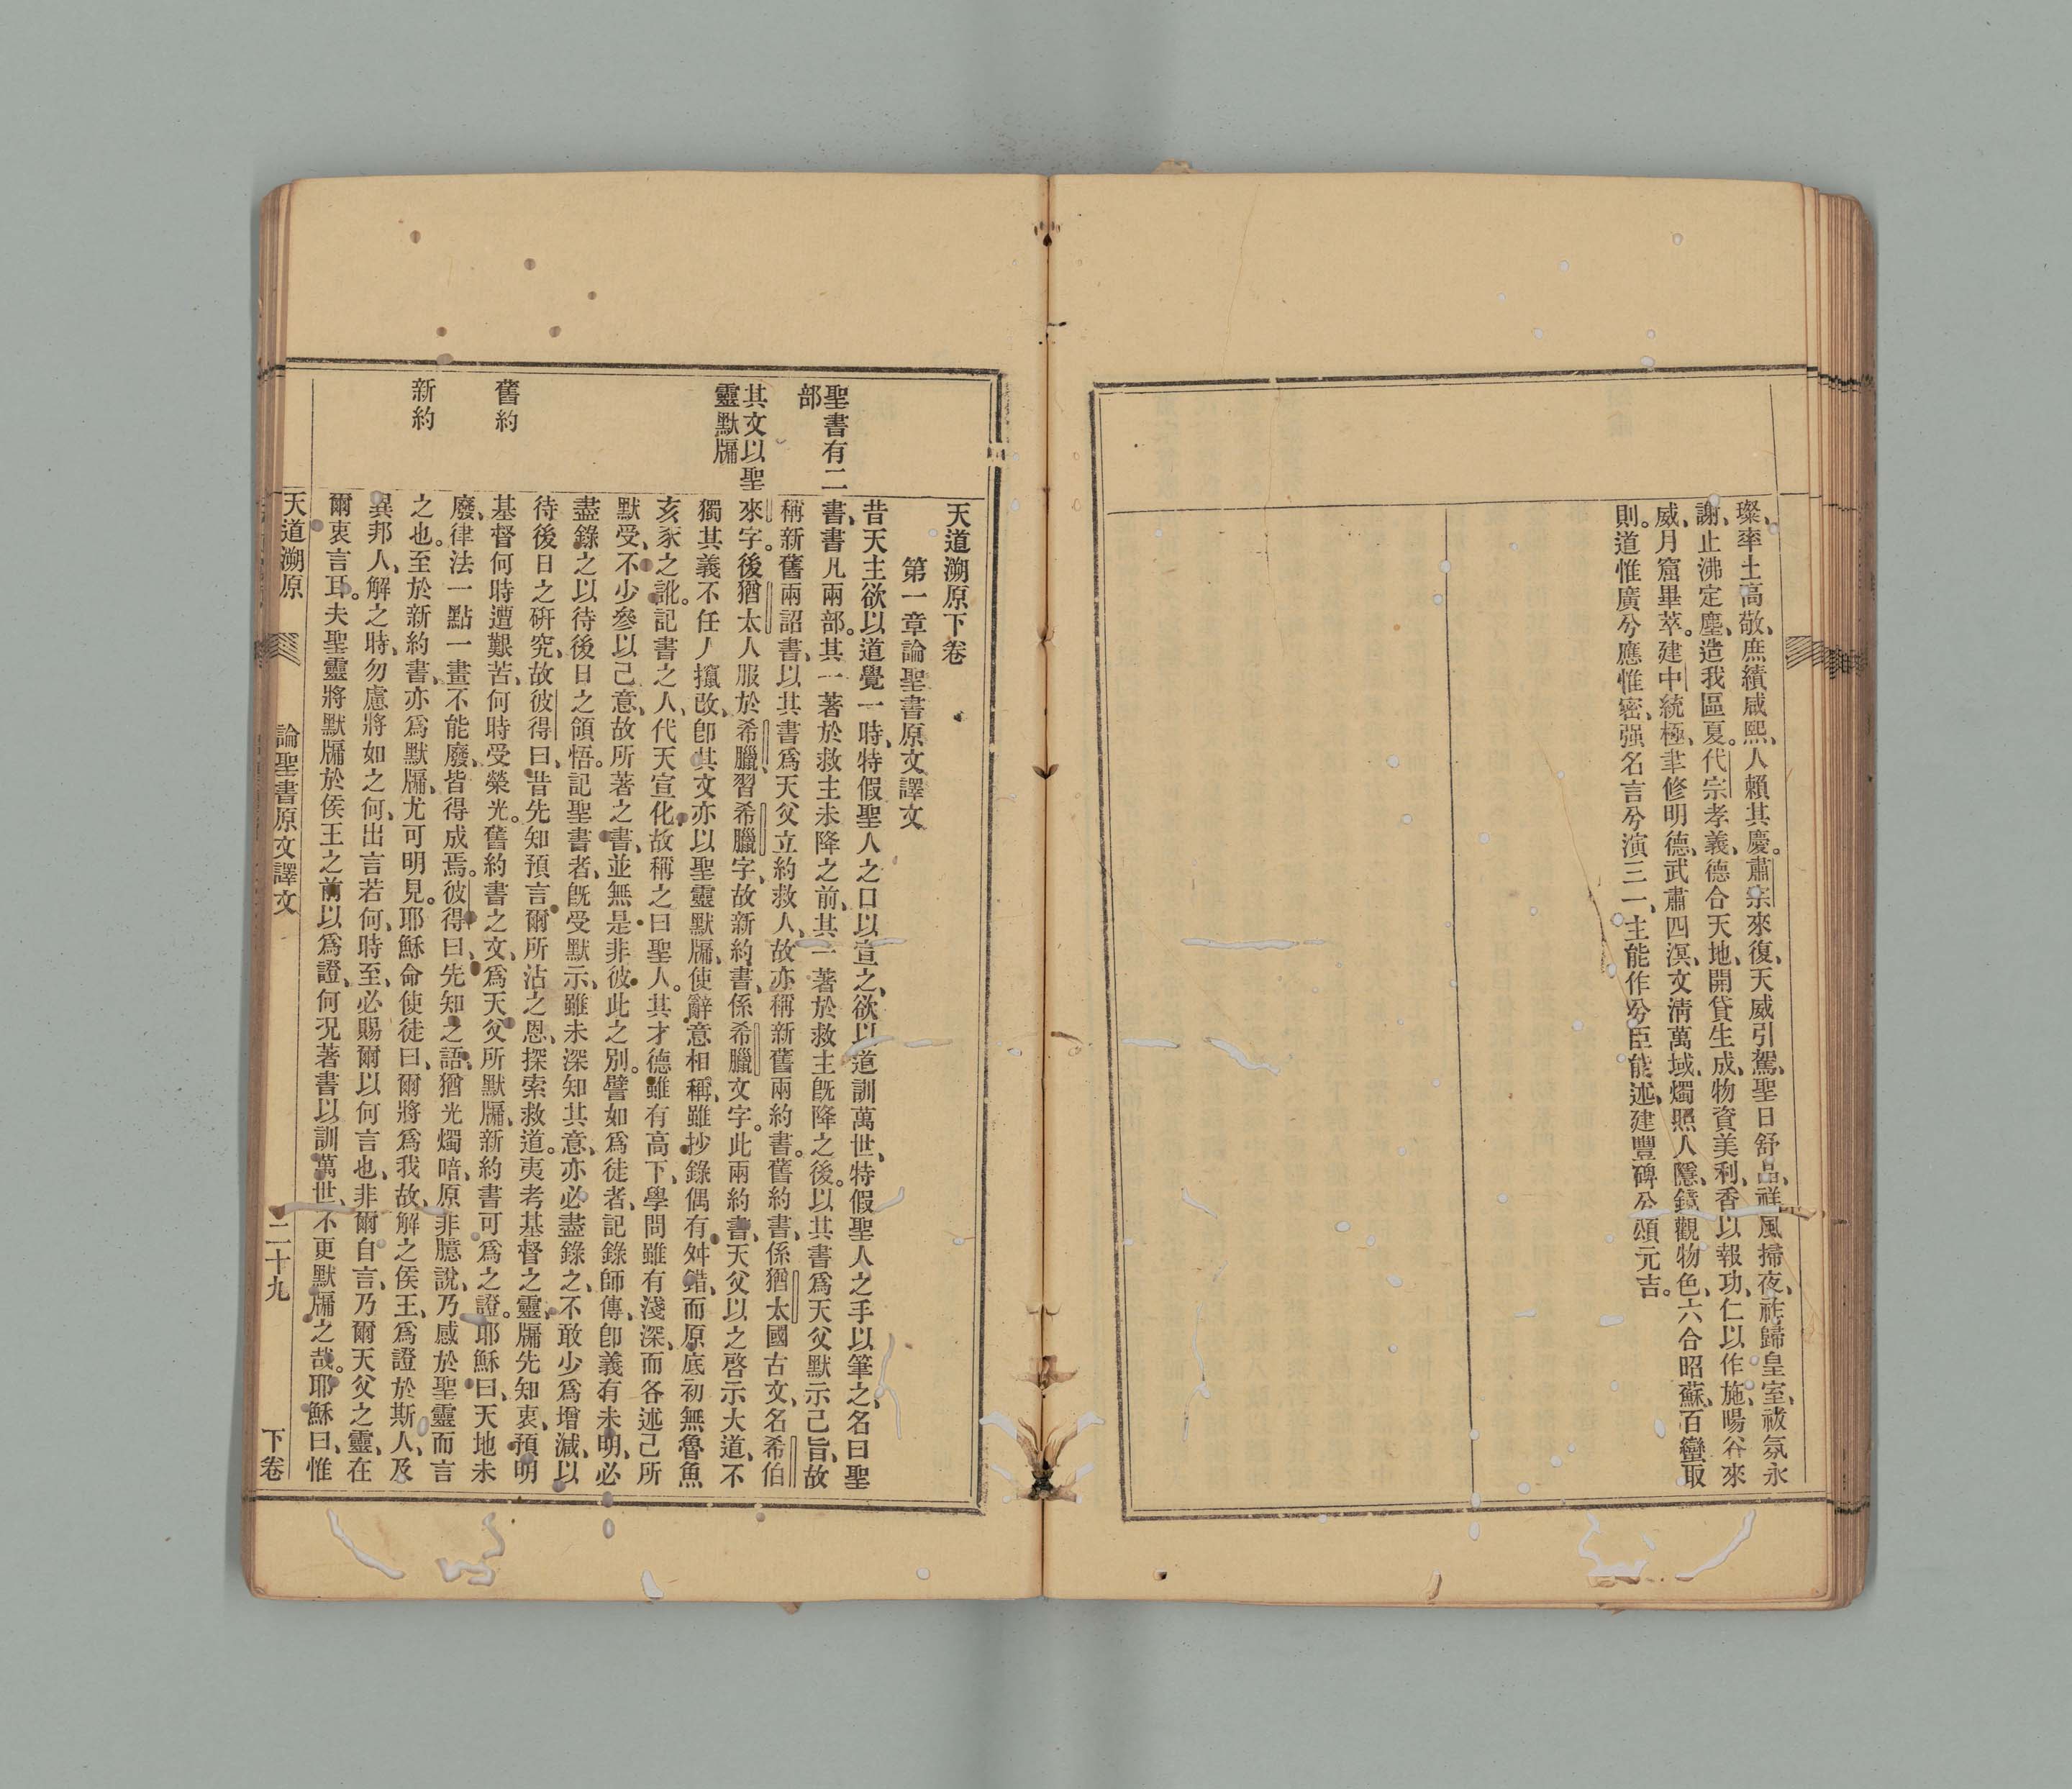 璨、率土高敬、庶績咸熙、人賴其慶。肅宗來復、天威引駕、聖日舒晶、祥風掃夜、祚歸皇室、祓氛永
謝、止沸定塵、造我區夏。代宗孝義、德合天地、開貸生成、物資美利、香以報功、仁以作施、暘谷來
威、月窟畢萃。建中統極、聿修明德、武肅四溟、文淸萬域、燭照人隱、鏡觀物色、六合昭蘇、百蠻取
則。道惟廣兮應惟密、强名言兮演三一、主能作兮臣能述、建豐碑兮頌元吉。
天道溯原下卷
第一章論聖書原文譯文
聖書有二
部
其文以聖
靈默牖
舊約
新約
昔天主欲以道覺一時、特假聖人之口以宣之、欲以道訓萬世、特假聖人之手以筆之、名曰聖
書、書凡兩部。其一著於救主未降之前、其一著於救主旣降之後。以其書爲天父默示己旨、故
稱新舊兩詔書、以其書爲天父立約救人、故亦稱新舊兩約書。舊約書、係猶太國古文、名希伯
來字。後猶太人服於希臘、習希臘字、故新約書、係希臘文字。此兩約書、天父以之啓示大道、不
獨其義不任人擅改、卽其文亦以聖靈默牖、使辭意相稱、雖抄錄偶有舛錯、而原底初無魯魚
亥豕之訛。記書之人、代天宣化、故稱之曰聖人。其才德雖有高下、學問雖有淺深、而各述己所
默受、不少參以己意、故所著之書、並無是非彼此之別。譬如爲徒者、記錄師傳、卽義有未明、必
盡錄之以待後日之領悟。記聖書者、旣受默示、雖未深知其意、亦必盡錄之、不敢少爲增減、以
待後日之硏究、故彼得曰、昔先知預言爾所沾之恩、探索救道。夷考基督之靈、牖先知衷、預明
基督何時遭艱苦、何時受榮光。舊約書之文、爲天父所默牖、新約書可爲之證。耶穌曰、天地未
廢、律法一點一畫不能廢、皆得成焉。彼得曰、先知之語、猶光燭暗、原非臆說、乃感於聖靈而言
之也。至於新約書、亦爲默牖、尤可明見。耶穌命使徒曰、爾將爲我故、解之侯王、爲證於斯人、及
異邦人、解之時、勿慮將如之何、出言若何、時至、必賜爾以何言也、非爾自言、乃爾天父之靈、在
爾衷言耳。夫聖靈將默牖於侯王之前以爲證、何况著書以訓萬世、不更默牖之哉。耶穌曰、惟
天道溯原
論聖書原文譯文
二十九
下卷